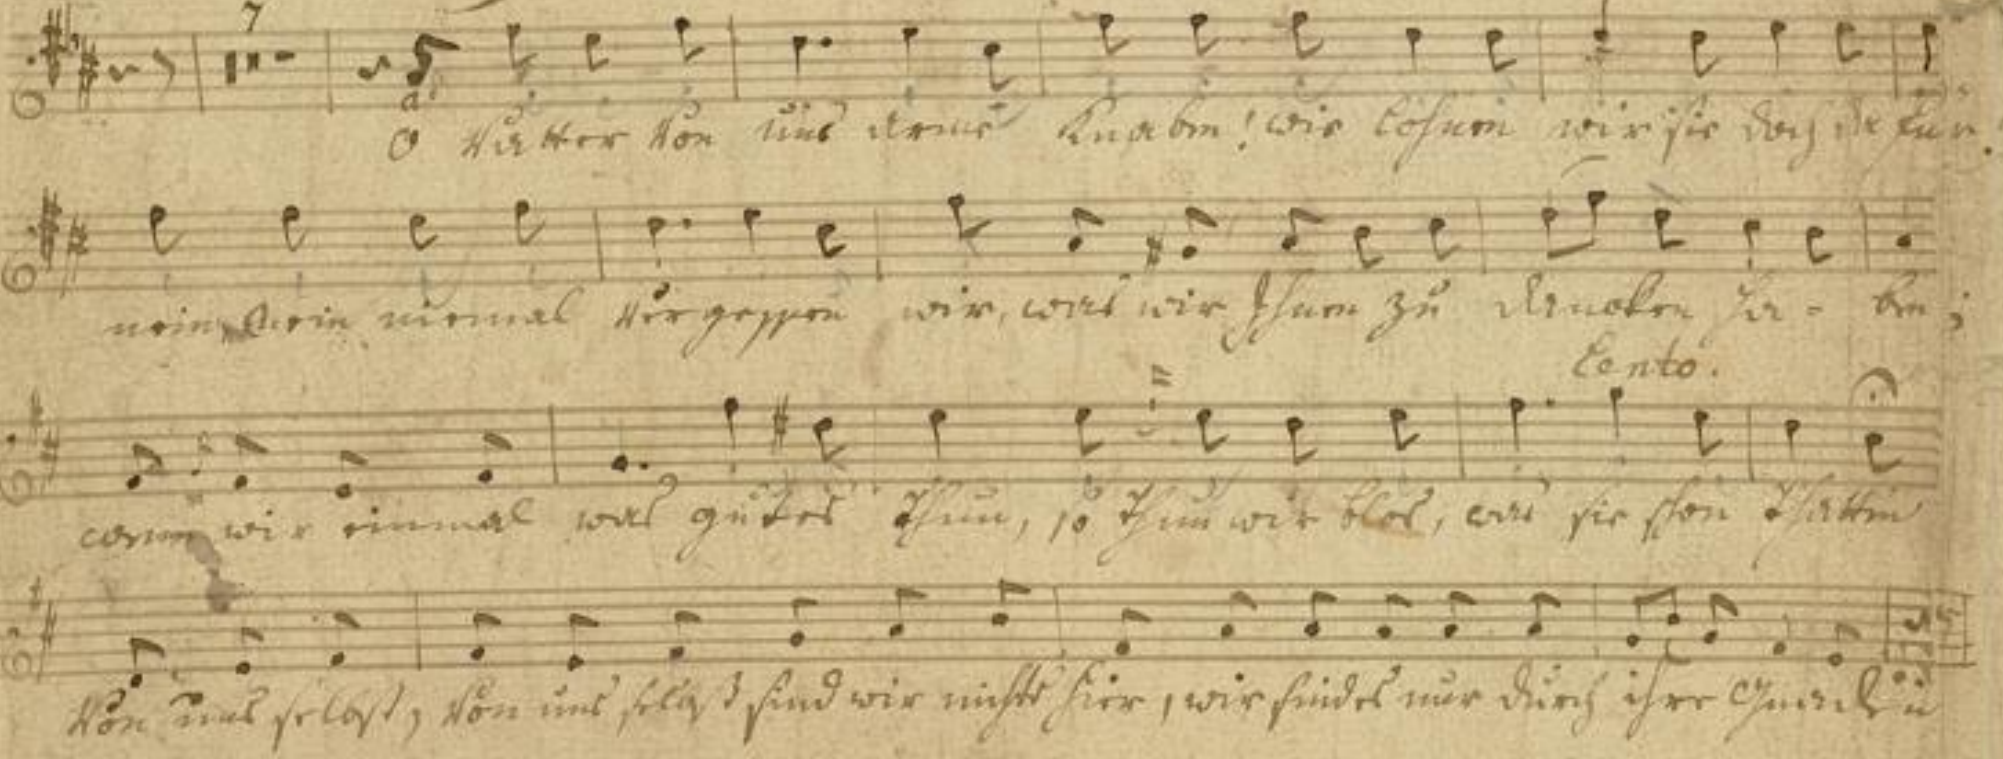 7
O Vatter von uns arme Knaben! wie lohnen wir sie doch dafür?
nein, nein niemal vergessen wir, was wir Ihnen zu dancken ha - ben;
Lento.
wenn wir einmal was gutes thun, so thun wir blos, was sie schon thatten
Von uns selbst, von uns selbst sind wir nichts hier, wir sindes nur durch ihre Gnad